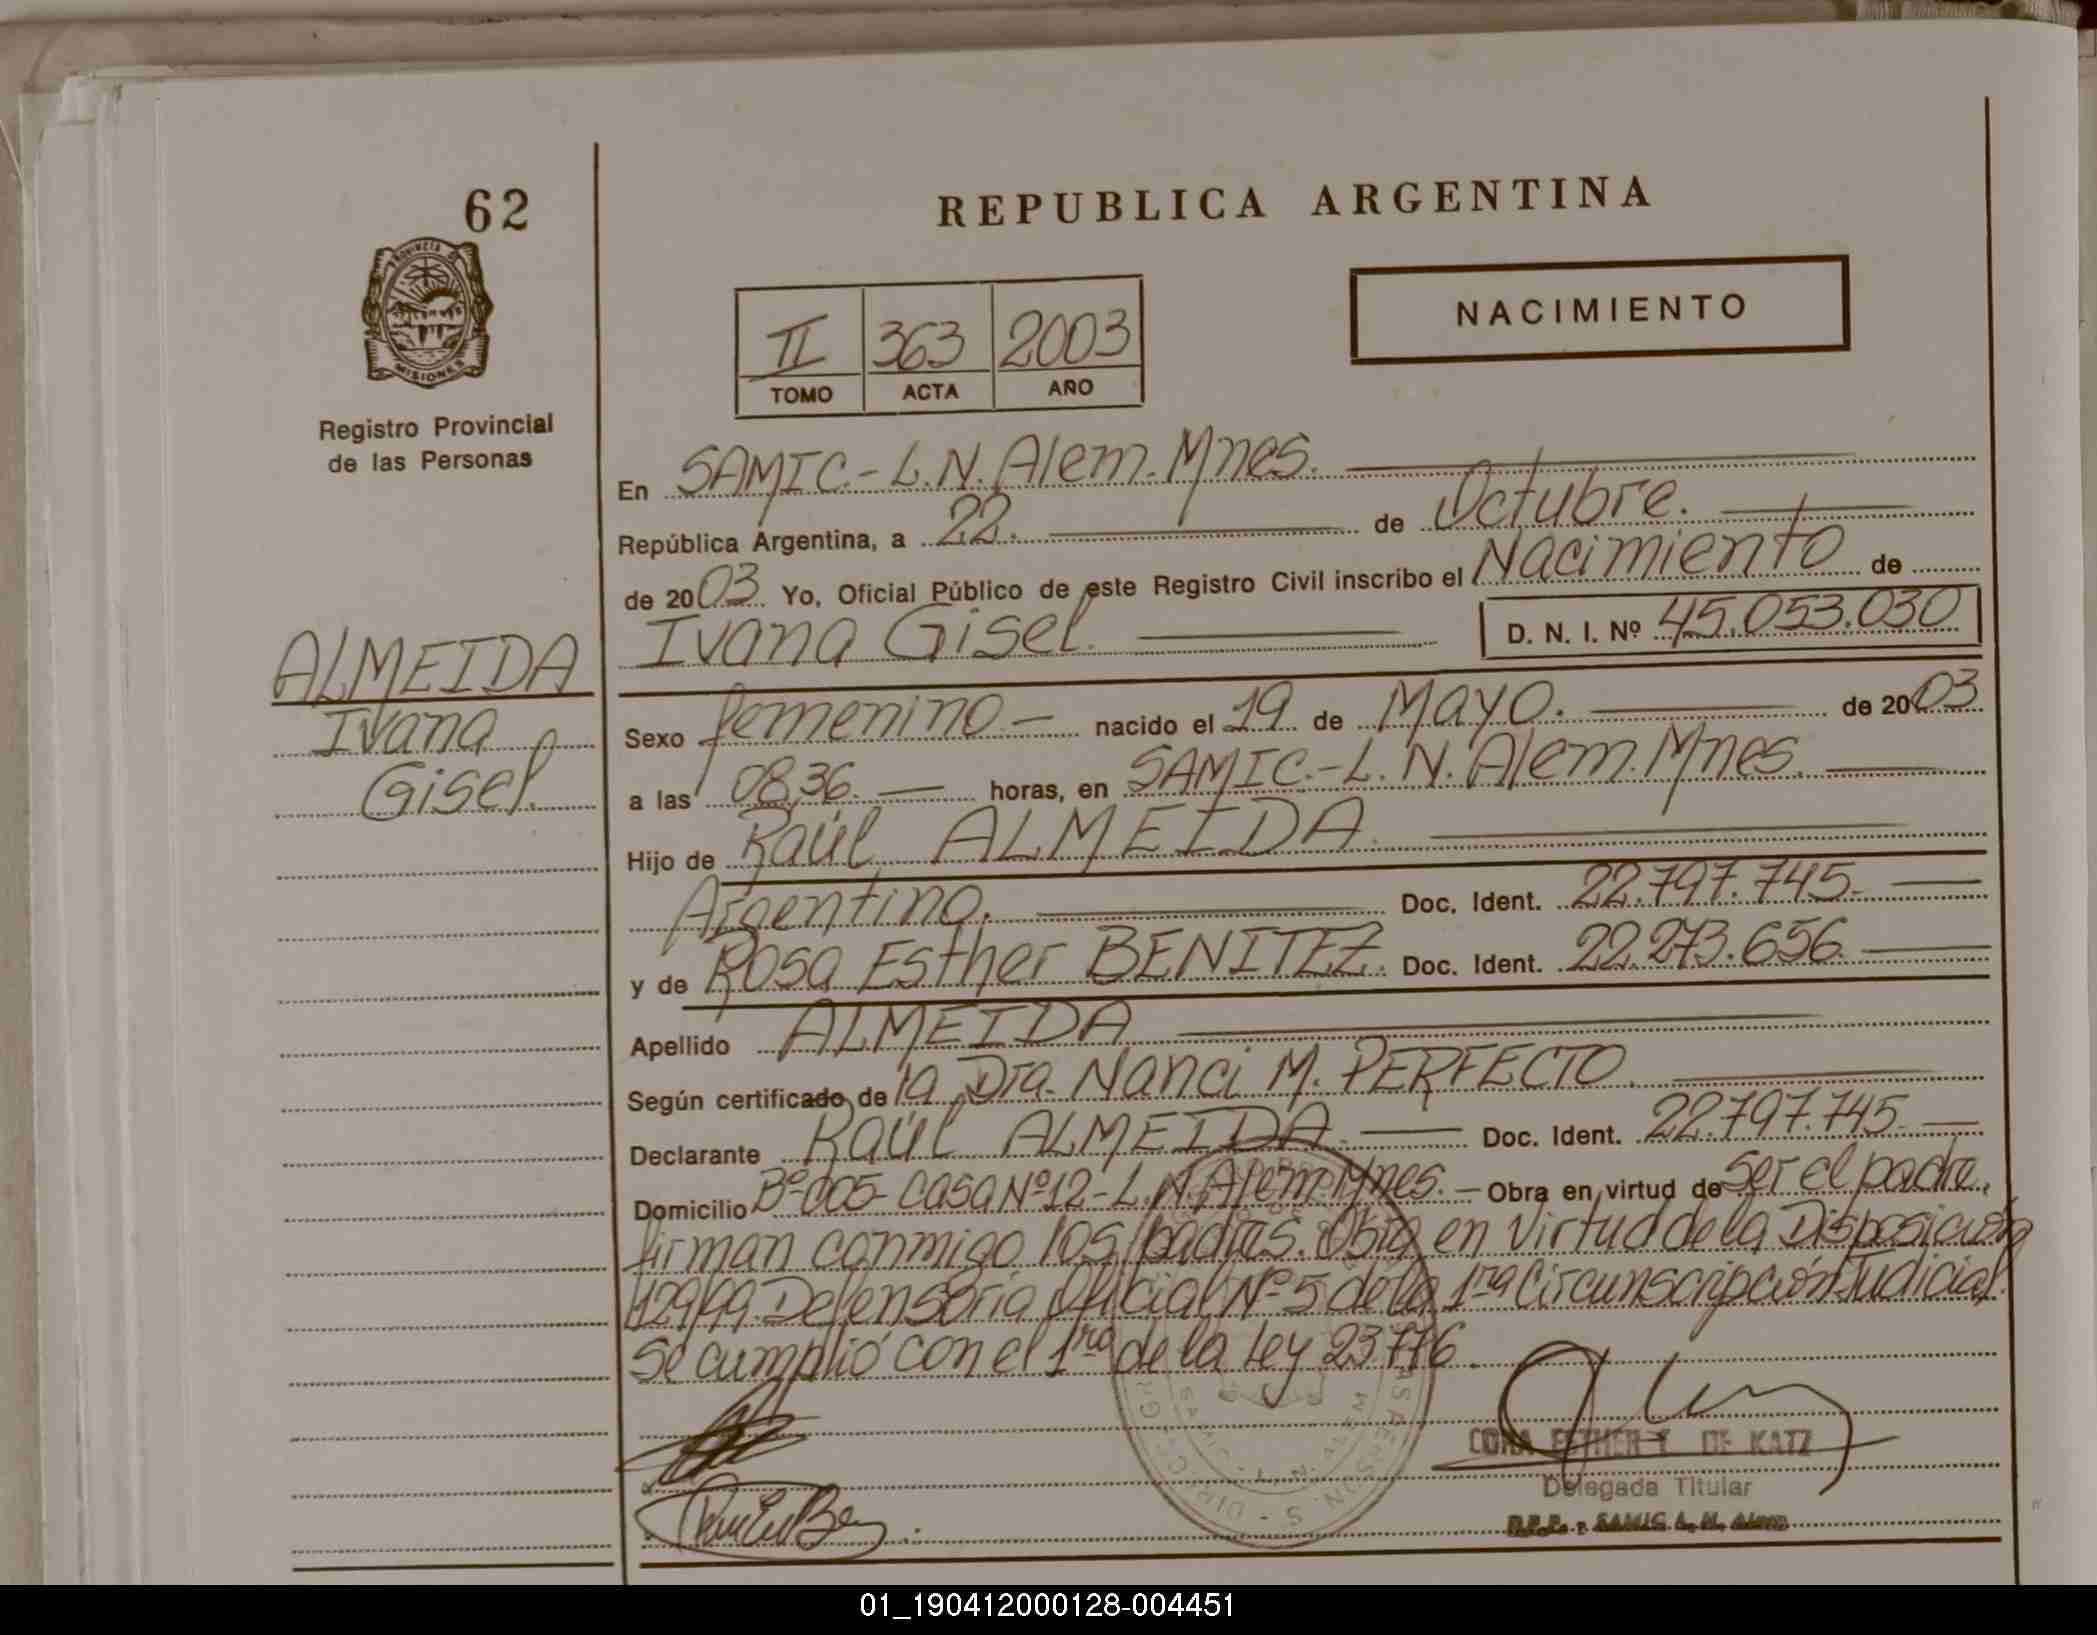 62
PROVINCIA DE
MISIONES
Registro Provincial
de las Personas
ALMEIDA
Ivana
Gisel.
REPUBLICA ARGENTINA
NACIMIENTO
II 363 2003
TOMO ACTA AÑO
En SAMIC.- L.N. Alem. Mnes.
República Argentina, a 22. de Octubre.
de 2003 Yo, Oficial Público de este Registro Civil inscribo el Nacimiento de
Ivana Gisel. D. N. I. Nº 45.053.030
Sexo femenino - nacido el 19 de Mayo. de 2003
a las 08,36. horas, en SAMIC.- L. N. Alem. Mnes.
Hijo de Raúl ALMEIDA.
Argentino. Doc. Ident. 22.797.745.-
y de Rosa Esther BENITEZ. Doc. Ident. 22.273.656.
Apellido ALMEIDA
Según certificado de la Dra. Nanci M. PERFECTO.
Declarante Raúl ALMEIDA. Doc. Ident. 22.797.745.
Domicilio Bº 005- Casa Nº 12- L.N. Alem. Mnes. - Obra en virtud de ser el padre,
firman conmigo los padres. Obro en virtud de la Disposición
129/99. Defensoría Oficial Nº 5 de la 1ra Circunscripción Judicial.
Se cumplió con el 1ro de la Ley 23.776.
CORA ESTHER Y. DE KATZ
Delegada Titular
R.P.P. - SAMIC L. N. Alem
01_190412000128-004451